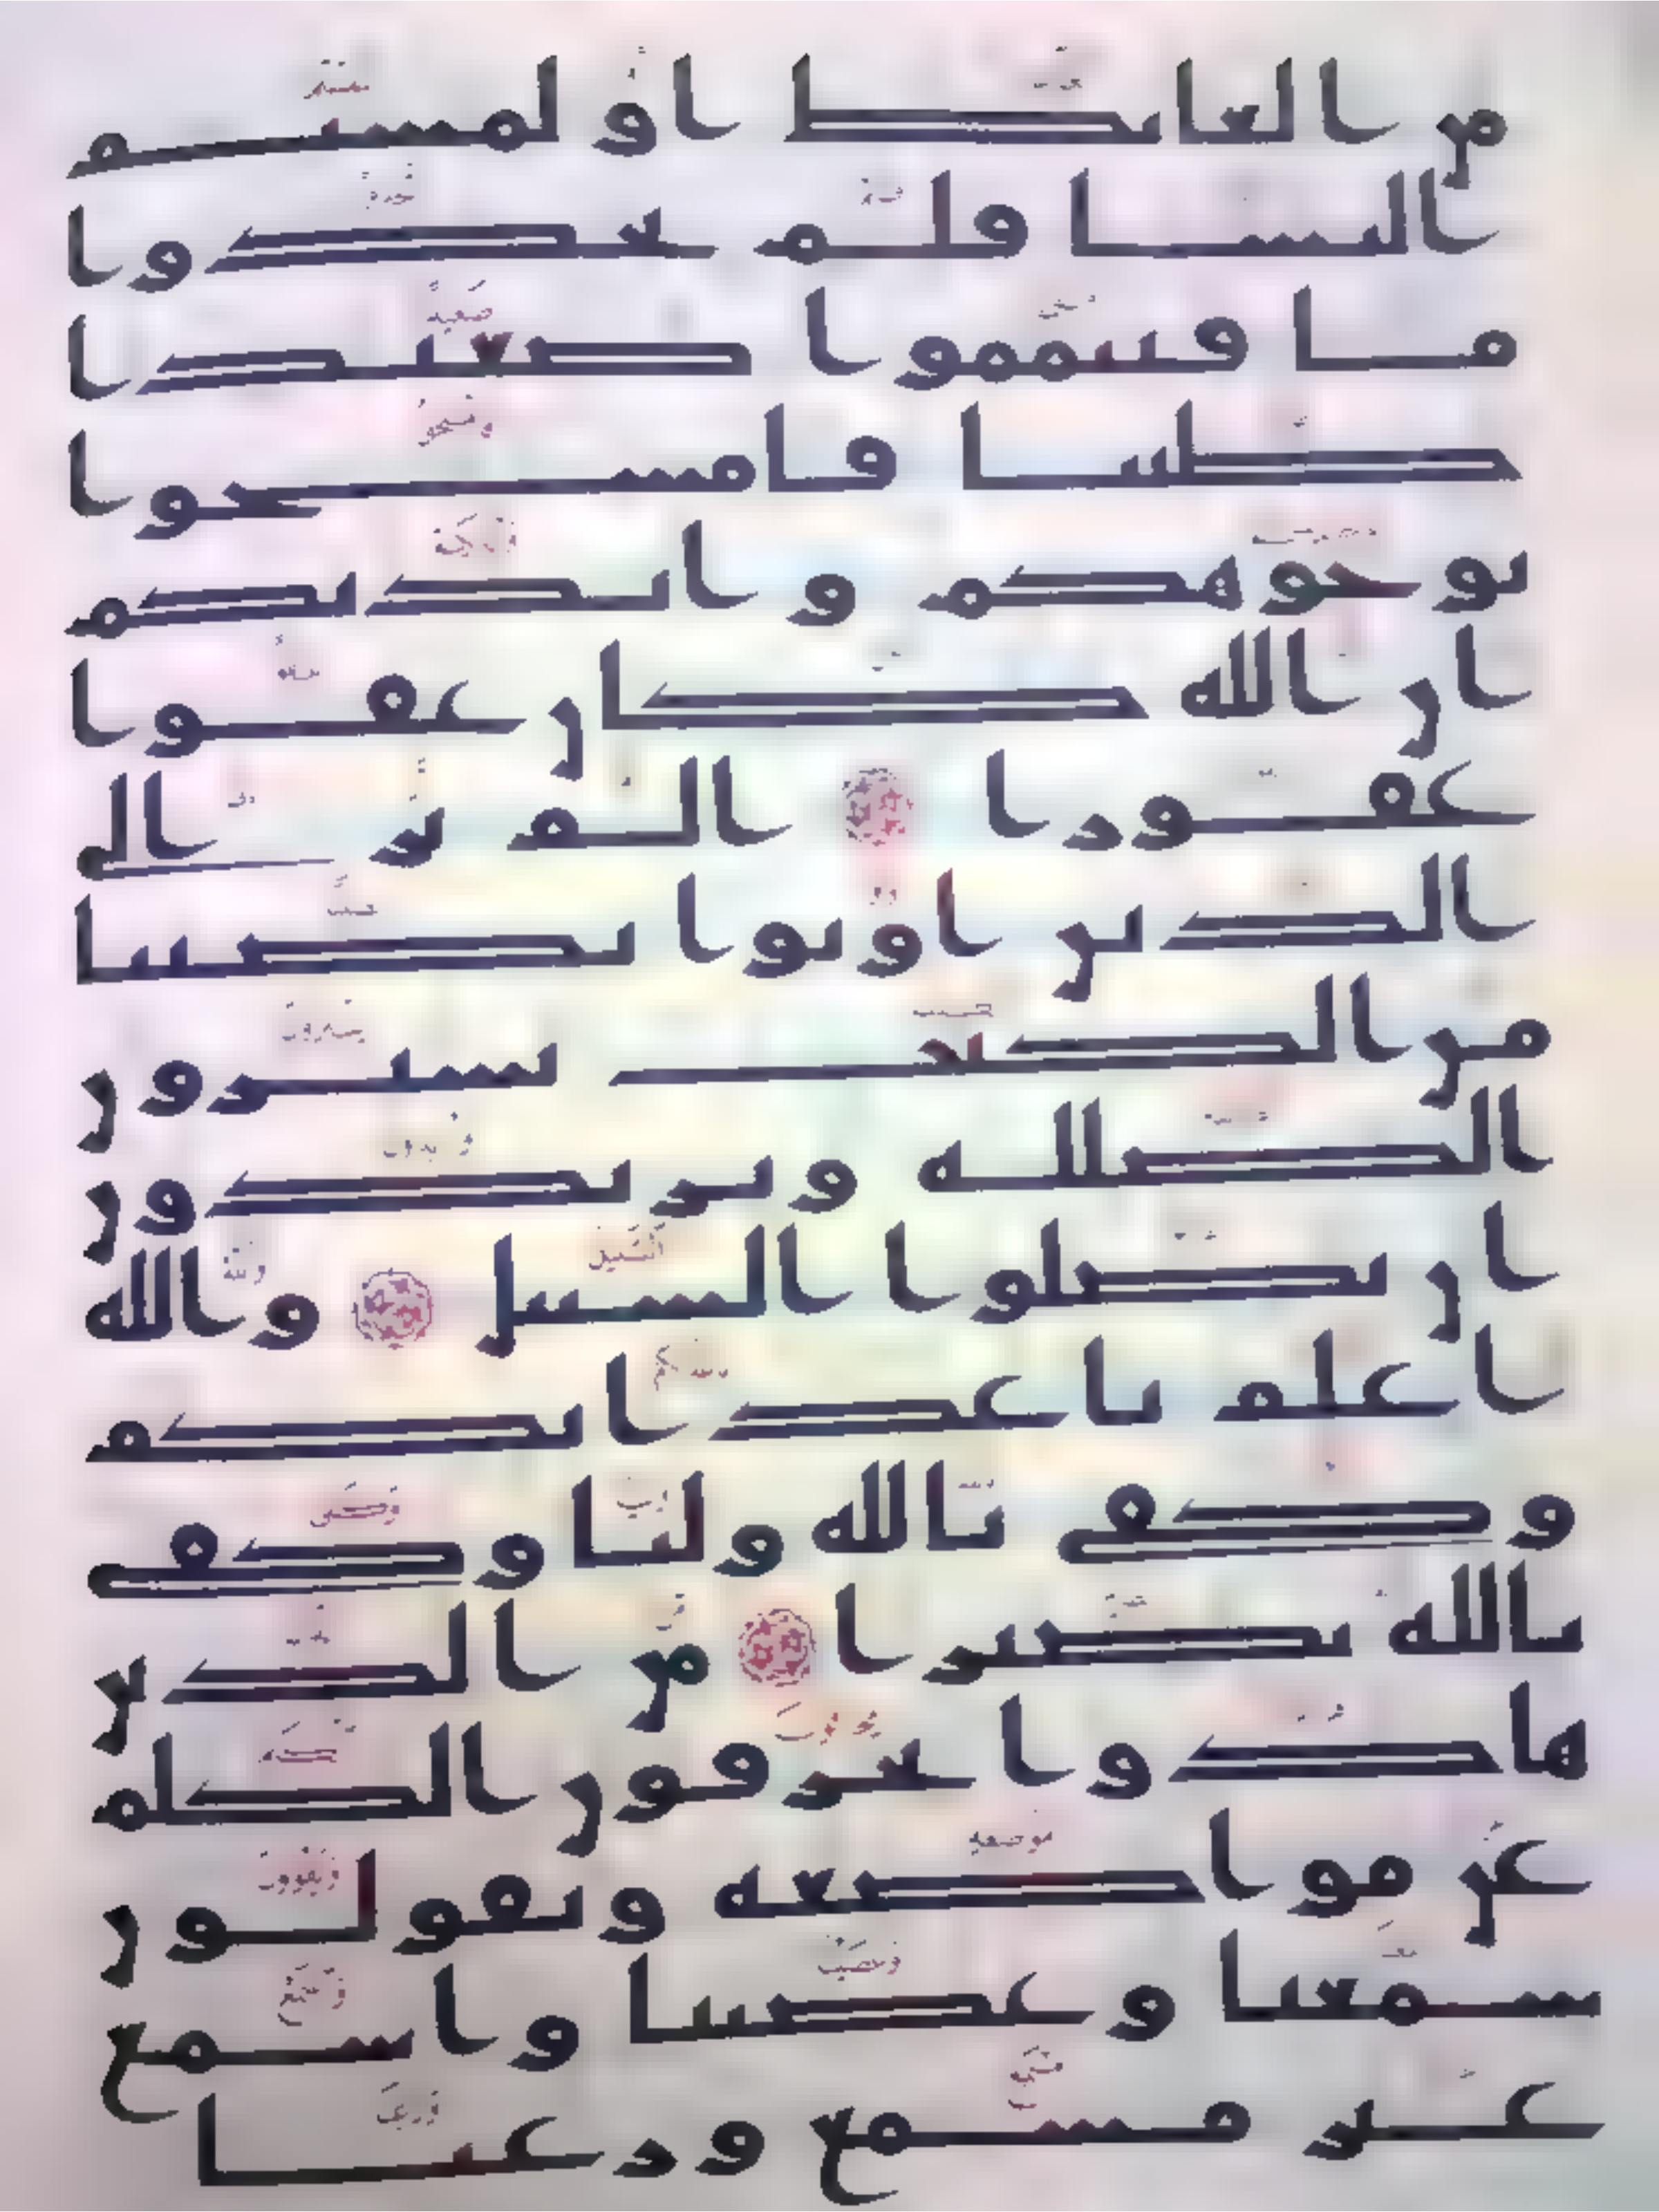 من الغايط او لمستم
النسا فلم تجدوا
ما فتيمموا صعيدا
طيبا فامسحوا
بوجوهكم وايديكم
ان الله كان عفوا
غفورا الم تر الى
الذين اوتوا نصيبا
من الكتب يشترون
الضللة ويريدون
ان تضلوا السبيل والله
اعلم باعدايكم
وكفى بالله وليا وكفى
بالله نصيرا من الذين
هادوا يحرفون الكلم
عن مواضعه ويقولون
سمعنا وعصينا واسمع
غير مسمع ورعنا